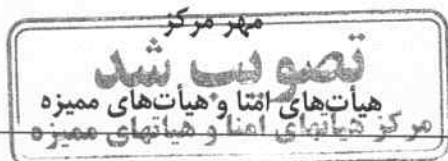 مهر مرکز
تصویب شد
هیأت‌های امنا و هیأت‌های ممیزه
مرکز هیاتهای امنا و هیاتهای ممیزه